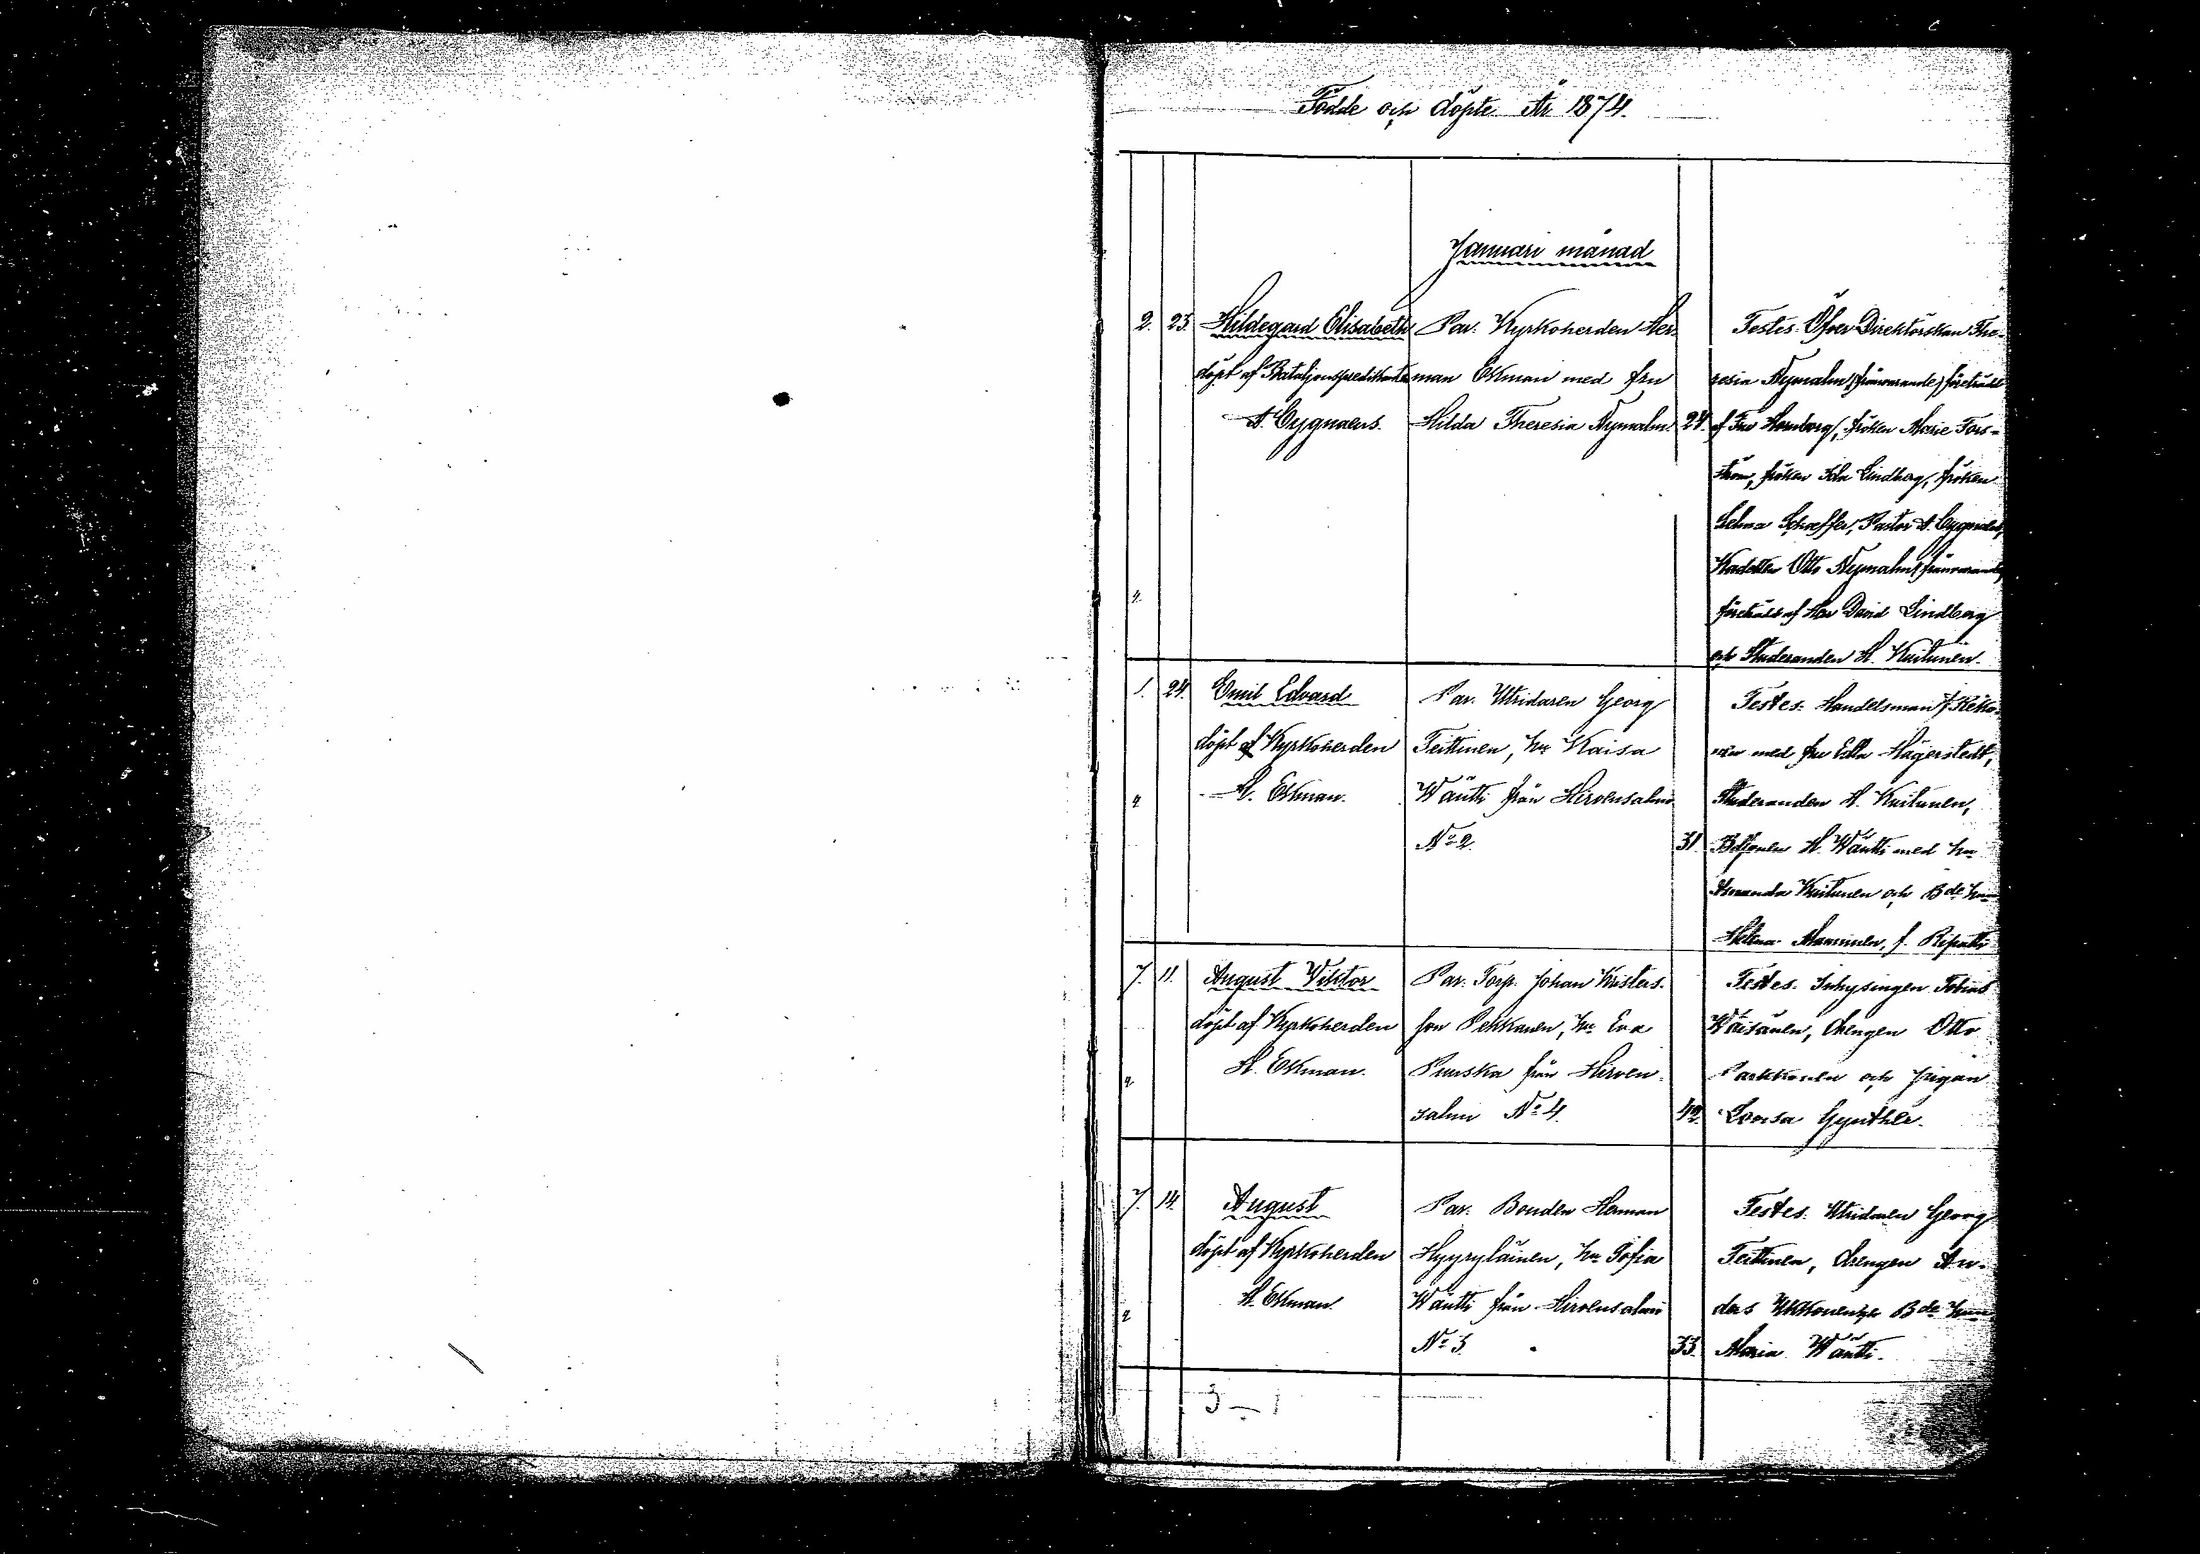 Födde och döpte År 1874.
Januari månad
2. 23. Hildegard Elisabeth
döpt af Bataljonspredikanten
A. Cygnaeus.
Par. Kyrkoherden Her-
man Ekman med fru
Hilda Theresia Nymalm. 24.
Testes. Öfver Direktörskan The-
resia Nymalm (frånvarande) företrädd
af Fru Hornborg, fröken Marie Fors-
ström, fröken Ida Lindberg, fröken
Selma Schæffer, Pastor A. Cygnæus,
Kadetten Otto Nymalm (frånvarande)
företrädd af Herr David Lindberg
och Studeranden H. Kuitunen.
4.
1. 24. Emil Edvard
döpt af Kyrkoherden
H. Ekman.
2
Par. Uridaren Georg
Teittinen, hu Kaisa
Wäntti från Hirvensalmi
No 2. 31.
Testes. Handelsman
med fru Edla Hägerstedt,
Studeranden H. Kuitunen,
H. Wäntti med hu
Amanda Kuitunen och Bde hu
Helena Manninen, f. Ripatti
7. 11. August Viktor
döpt af Kyrkoherden
H. Ekman.
2.
Par. Torp. Johan Kristers-
son Pekkanen, hu Eva
Puuska från Hirven-
salmi No 4. 42.
Testes. Inhysingen Tobias
Wäisänen, drengen Otto
Parkkonen och pigan
Lovisa Gynthér.
7. 14. August
döpt af Kyrkoherden
H. Ekman.
2
Par. Bonden Herman
Hyyryläinen, hu Sofia
Wäntti från Hirvensalmi
No 3. 33.
Testes. Uridaren Georg
Teittinen, drengen An-
ders Ukkonen Bde hu
Maria Wäntti.
3 — 1